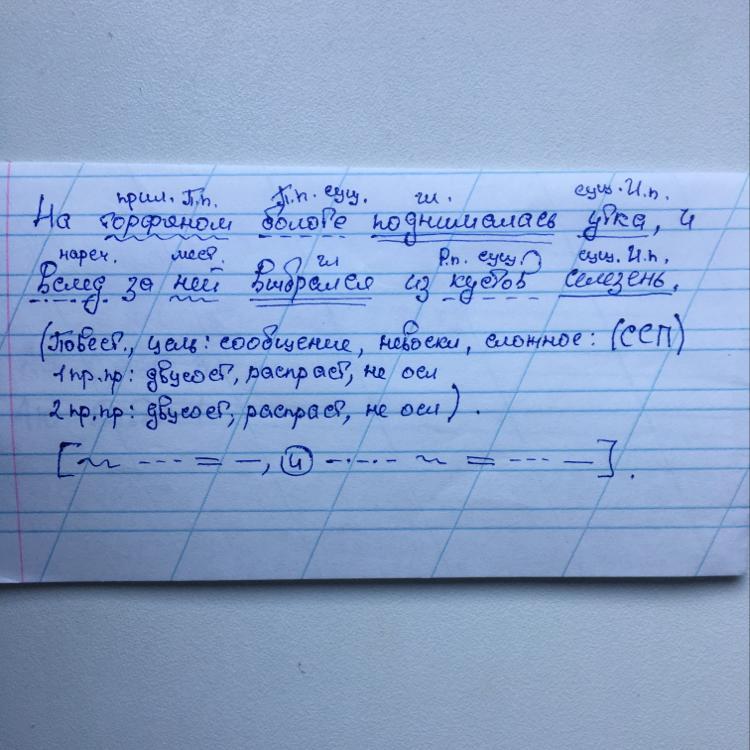 прил. П.п. П.п. сущ. гл. сущ. И.п.
На торфяном болоте поднималась утка, и
нареч. мест. гл Р.п. сущ. сущ. И.п.
вслед за ней выбрался из кустов селезень.
(Повест., цель: сообщение, невоскл, сложное: (ССП)
1 пр.пр: двусост, распраст, не осл
2 пр.пр: двусост, распраст, не осл).
[ , и ].